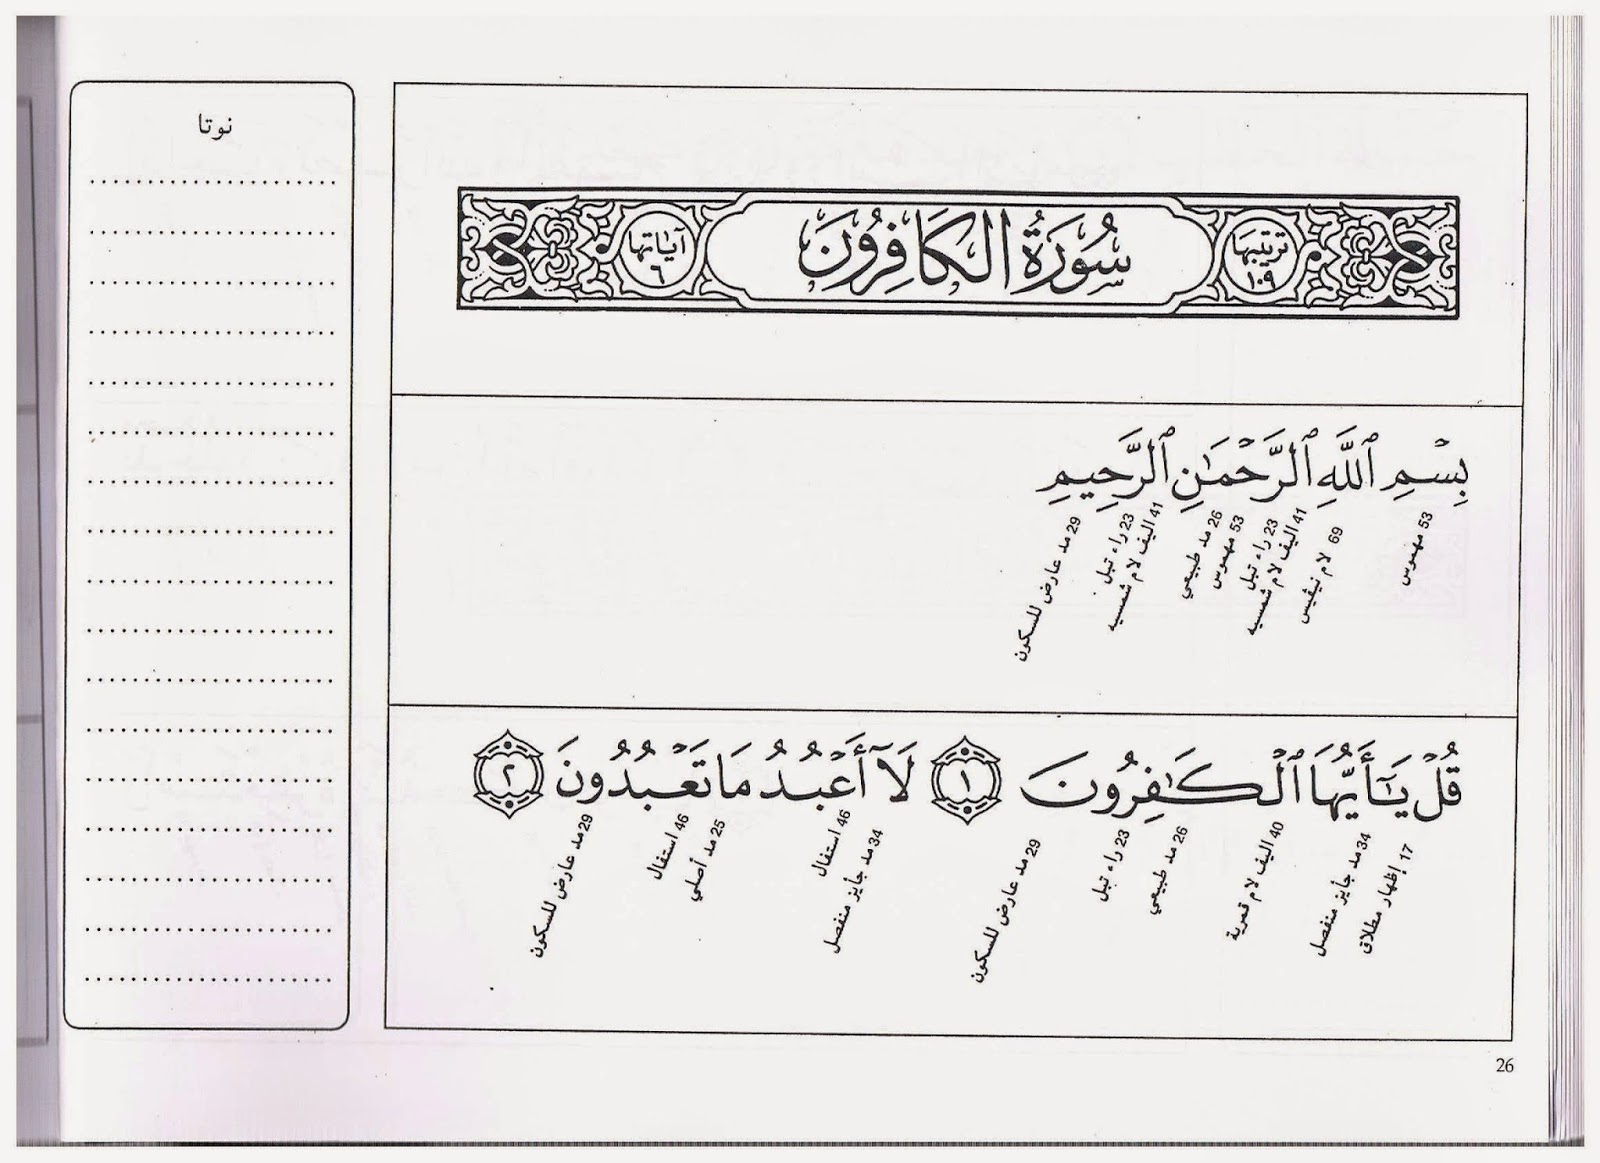 ترتيبها
١٠٩
سُورَةُ الْكَافِرُونَ
آياتها
٦
بِسْمِ ٱللَّهِ ٱلرَّحْمَٰنِ ٱلرَّحِيمِ
53 مهموس
69 لام نيڤيس
41 اليف لام شمسيه
23 راء تبل
53 مهموس
26 مد طبيعي
41 اليف لام شمسيه
23 راء تبل
29 مد عارض للسكون
قُلْ يَٰٓأَيُّهَا ٱلْكَٰفِرُونَ ١ لَآ أَعْبُدُ مَا تَعْبُدُونَ ٢
17 إظهار مطلاق
34 مد جأيز منفصل
40 اليف لام قمرية
26 مد طبيعي
23 راء تبل
29 مد عارض للسكون
34 مد جأيز منفصل
46 استفال
25 مد أصلي
46 استفال
29 مد عارض للسكون
نوتا
26